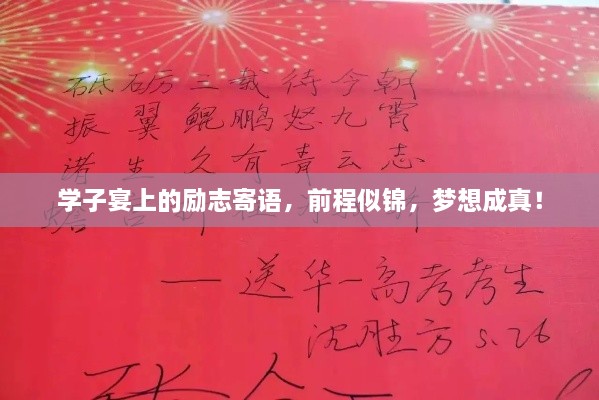 砥砺三载待今朝
振翼鲲鹏怒九霄
诸生久有青云志
学子宴上的励志寄语，前程似锦，梦想成真！
——送华一高考考生
沈胜方 5.26